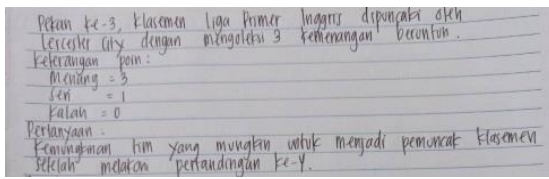 Pekan ke-3, klasemen liga Primer Inggris dipuncaki oleh
Leicester City dengan mengoleksi 3 kemenangan beruntun.
Keterangan poin :
Menang = 3
Seri = 1
Kalah = 0
Pertanyaan :
Kemungkinan tim yang mungkin untuk menjadi pemuncak klasemen
setelah melakon pertandingan ke-4.